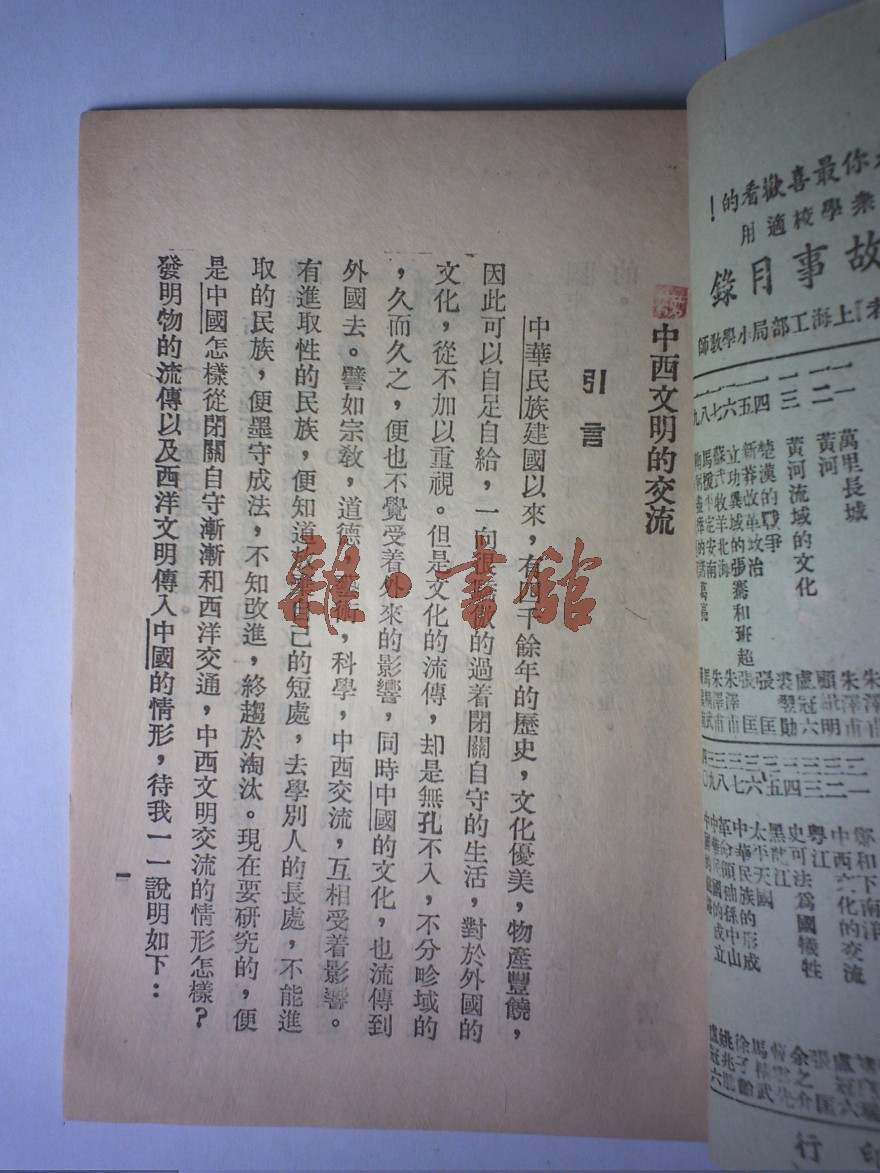 你最喜歡看的！
眾學校適用
故事目錄
上海工部局小學教師
一 萬里長城
二 黃河
三 黃河流域的文化
四 楚漢的戰爭
五 新莽改革政治
六 立功異域的張騫和班超
七 蘇武牧羊北海
八 馬援平定安南
朱澤甫
顧 明
盧冠六
裘翼勛
張 匡
張 匡
朱澤甫
朱澤甫
鄭和下南洋
中西文化的交流
粵江
史可法為國犧牲
黑龍江
太平天國
中華民族的形成
革命領袖孫中山
盧冠六
張 匡
余之介
馬精武
徐子貽
中西文明的交流
引言
中華民族建國以來，有四千餘年的歷史，文化優美，物產豐饒，
因此可以自足自給，一向很的過着閉關自守的生活，對於外國的
文化，從不加以重視。但是文化的流傳，却是無孔不入，不分畛域的
，久而久之，便也不覺受着外來的影響，同時中國的文化，也流傳到
外國去。譬如宗教，道德，藝術，科學，中西交流，互相受着影響。
有進取性的民族，便知道自己的短處，去學別人的長處，不能進
取的民族，便墨守成法，不知改進，終趨於淘汰。現在要研究的，便
是中國怎樣從閉關自守漸漸和西洋交通，中西文明交流的情形怎樣？
發明物的流傳以及西洋文明傳入中國的情形，待我一一說明如下：
一
雜·書館